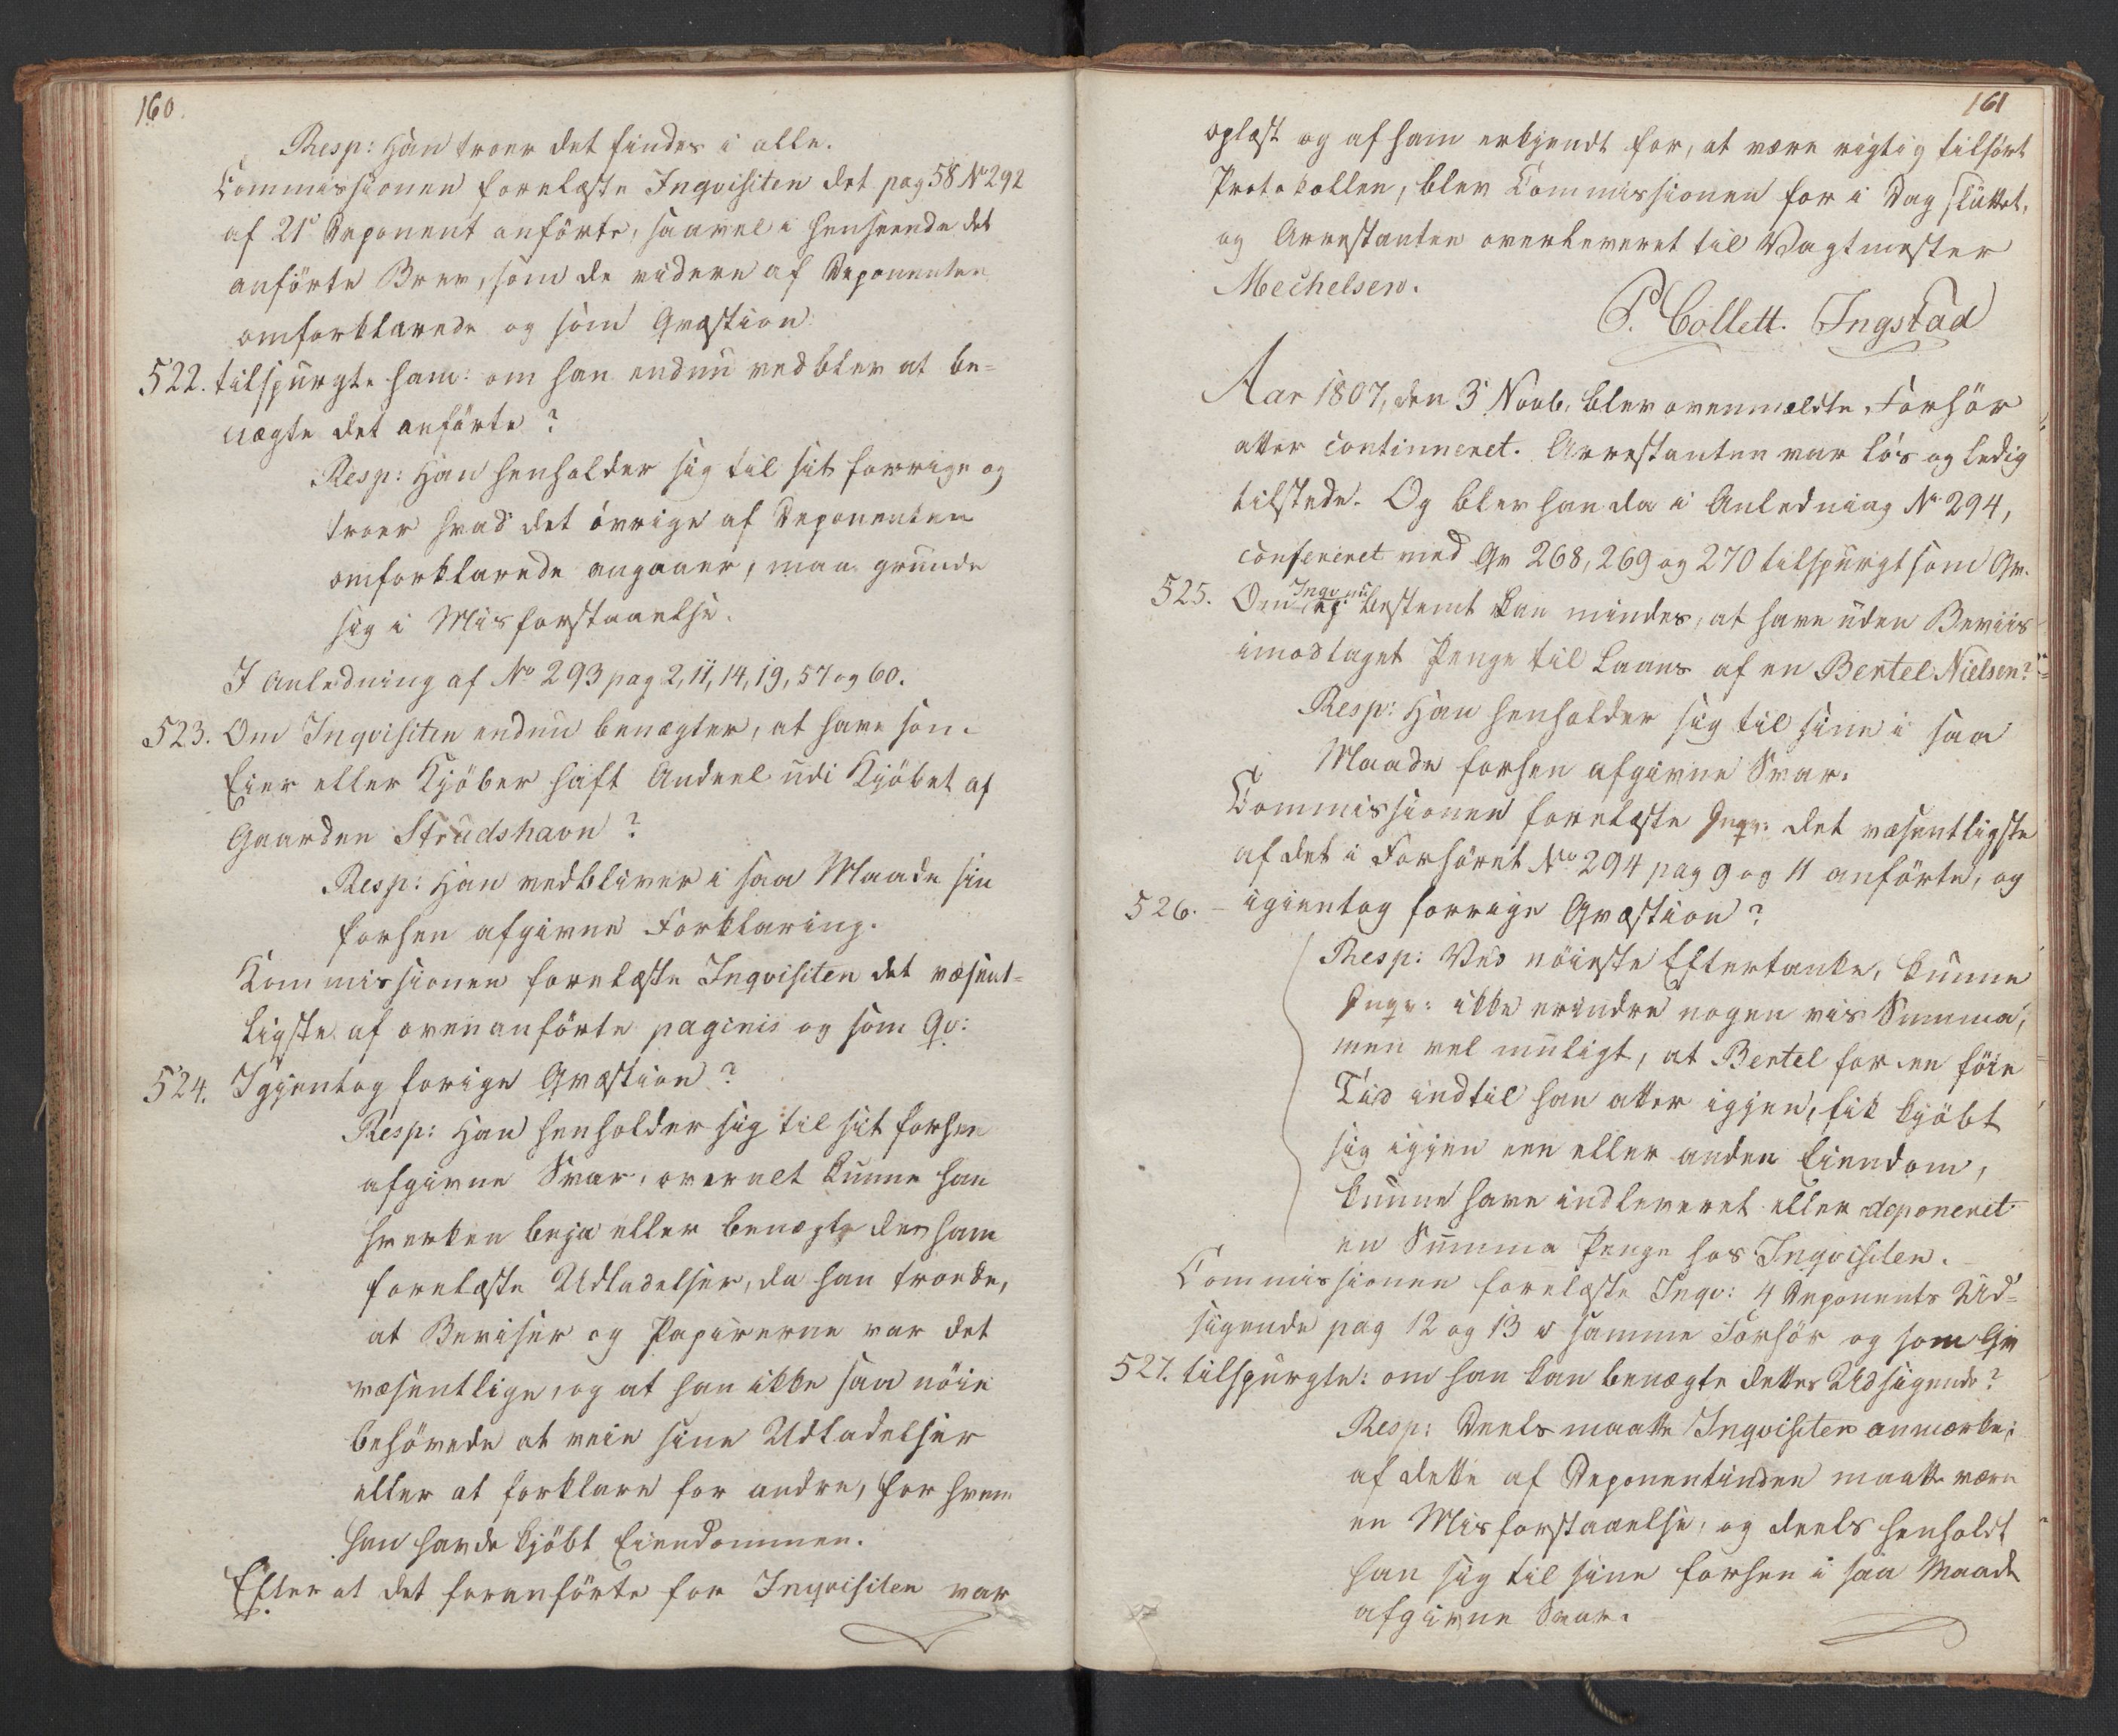 160.
Resp: Han troer det findes i alle.
Commissionen forelæste Inqvisiten det pag 58 No 292
af 21de Deponent anførte, saavel i henseende det
anførte Brev, som de videre af Deponenten
omforklarede og som Qvæstion
522. tilspurgte ham: om han endnu vedblev at be=
nægte det anførte?
Resp: Han henholder sig til sit forrige og
troer hvad det øvrige af Deponenten
omforklarede angaaer, maa grunde
sig i Misforstaaelse.
I Anledning af No 293 pag 2, 11, 14, 19, 57 og 60.
523. Om Inqvisiten endnu benægter, at have som
Eier eller Kjøber haft Andeel udi Kjøbet af
Gaarden Strudshavn?
Resp: Han vedbliver i saa Maade sin
forhen afgivne Forklaring.
Kommissionen forelæste Inqvisiten det væsent=
ligste af ovenanførte paginis og som Qv:
524. Igjentog forige Qvæstion?
Resp: Han henholder sig til sit forhen
afgivne Svar, overalt kunne han
hverken beja eller benægte des ham
forelæste Udladelser, da han troede,
at Beviser og Papirerne var det
væsentlige, og at han ikke saa nøie
behøvede at veie sine Udladelser
eller at forklare for andre, for hvem
han havde kjøbt Eiendommen.
Efter at det foranførte for Inqvisiten var
161
oplæst og af ham erkjendt for, at være rigtig tilført
Protokollen, blev Commissionen for i Dag sluttet,
og Arrestanten overleveret til Vagtmester
Mechelsen.
P. Collett. Ingstad
Aar 1807, den 3' Novb. blev ovenmældte Forhør
atter continueret. Arrestanten var løs og ledig
tilstede. Og blev han da i Anledning No 294,
confereret med Qv 268, 269 og 270 tilspurgt som Qv.
525. Om Inqv nu ej bestemt kan mindes, at have uden Beviis
imodtaget Penge til Laans af en Bertel Nielsen?
Resp: Han henholder sig til sine i saa
Maade forhen afgivne Svar.
Commissionen forelæste Inqv: det væsentligste
af det i Forhøret No 294 pag 9 og 11 anførte, og
526. - igientog forrige Qvæstion?
Resp: Ved nøieste Eftertanke, kunne
Inqv: ikke erindre nogen vis Summa,
men vel muligt, at Bertel for en føie
Tid indtil han atter igjen, fik kjøbt
sig igjen een eller anden Eiendom,
kunne have indleveret eller deponeret
en Summa Penge hos Inqvisiten.
Commissionen forelæste Inqv: 4 Deponents Ud=
sigende pag 12 og 13 i samme Forhør og som Qv
527. tilspurgte: om han kan benægte dettes Udsigende?
Resp: Deels maatte Inqvisiten anmærke;
af dette af Deponentinden maatte være
en Misforstaaelse, og deels henholdt
han sig til sine forhen i saa Maade
afgivne Svar.